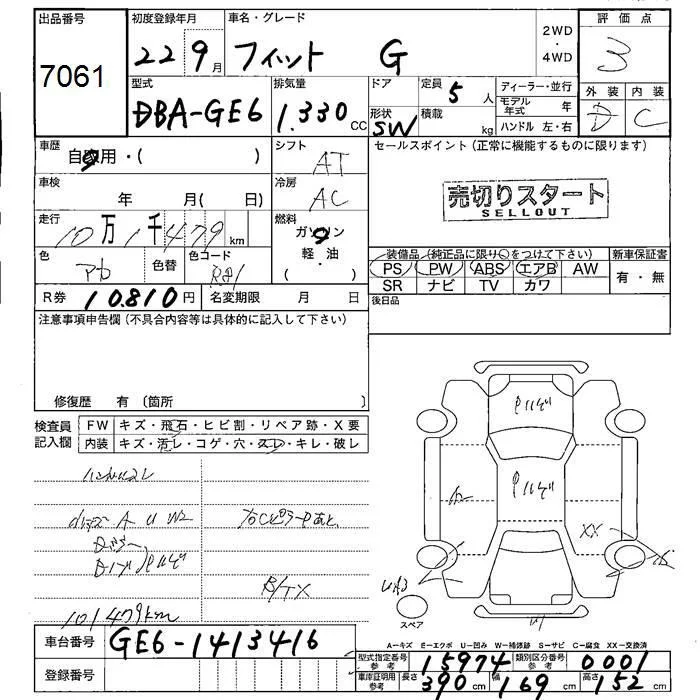 出品番号
7061
初度登録年月
22 9月
車名・グレード
フィット G
2WD
・
4WD
評価点
3
外装 内装
D C
型式
DBA-GE6
排気量
1.330 CC
ドア
形状
SW
定員
5人
積載
kg
ディーラー・並行
モデル年式 年
ハンドル 左・右
車歴
自家用・( )
シフト
AT
車検
年 月( 日)
冷房
AC
走行
10万1千479 km
燃料
ガソリン
軽・油
( )
色
色替
色コード
R81
R券
10.810円
名変期限 月 日
セールスポイント(正常に機能するものに限ります)
売切りスタート
SELLOUT
装備品(純正品に限り○をつけて下さい)
PS PW ABS エアB AW
SR ナビ TV カワ
新車保証書
有・無
後日品
注意事項申告欄(不具合内容等は具体的に記入して下さい)
修復歴 有〔箇所 〕
検査員
記入欄
FW キズ・飛石・ヒビ割・リペア跡・X要
内装 キズ・汚レ・コゲ・穴・スレ・キレ・破レ
A U W2
B/TX
101479km
XX
スペア
A…キズ E…エクボ U…凹み W…補修跡 S…サビ C…腐食 XX…交換済
車台番号
GE6-1413416
登録番号
型式指定番号
参考
15974
類別区分番号
参考
0001
車庫証明用
参考
長さ 390cm 幅 169cm 高さ 152cm